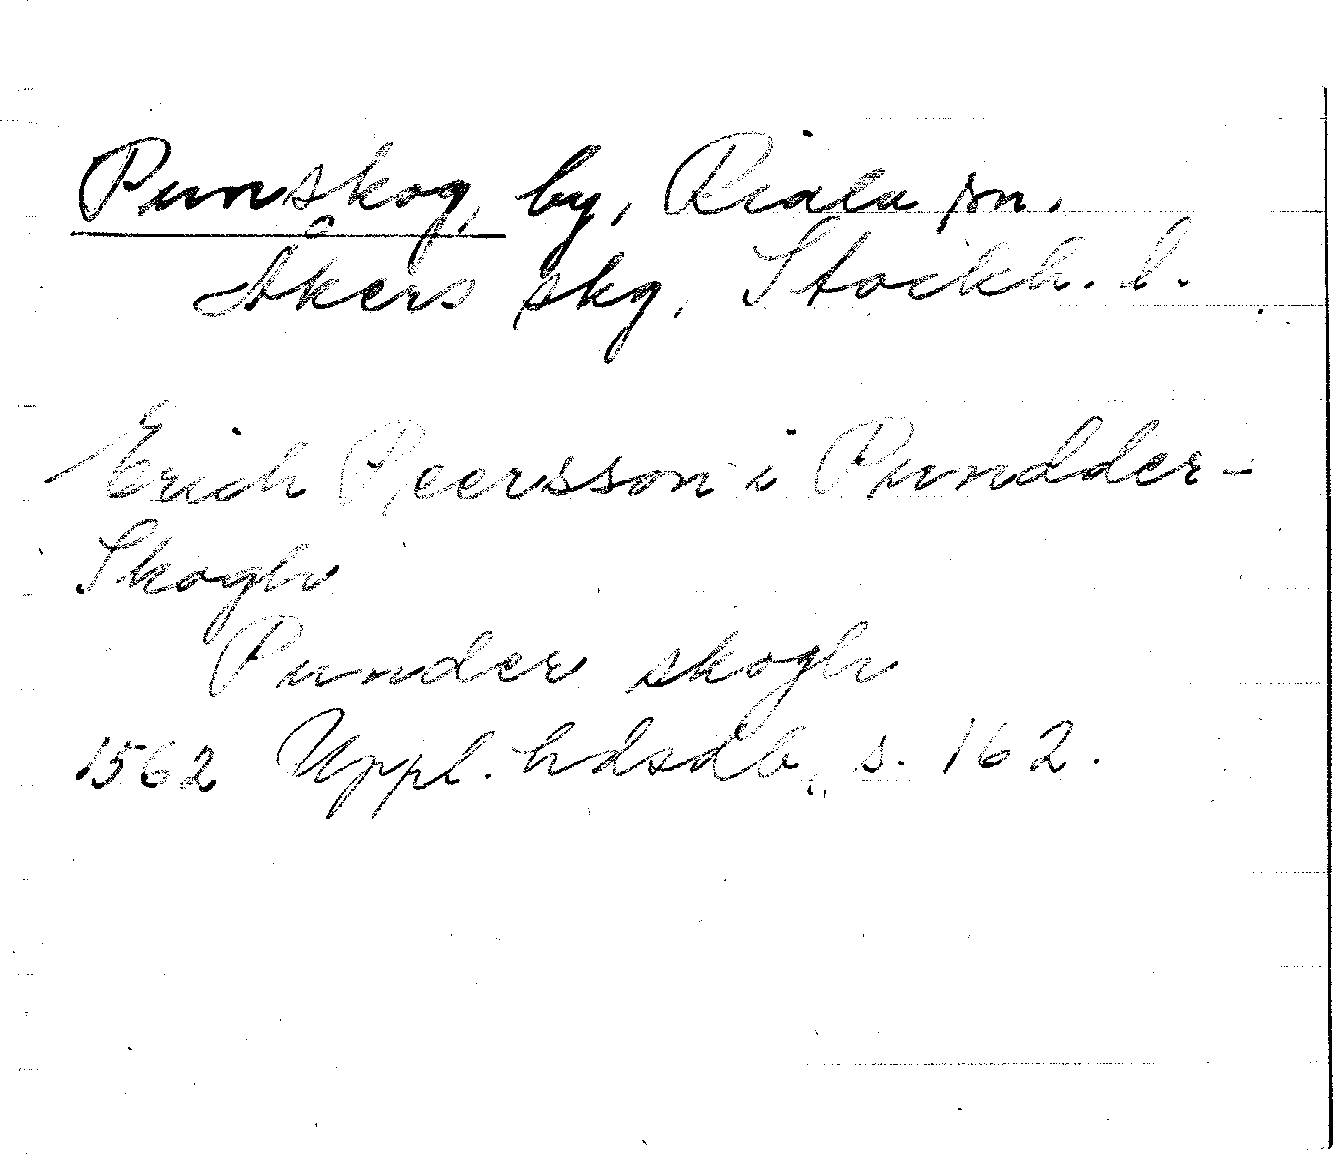 Punskog, by, Riala sn.
Åkers skg, Stockh. l.
Erich Peersson i Pundder-
Skogh
Punder skogh
1562 Uppl. hdsdb, s. 162.